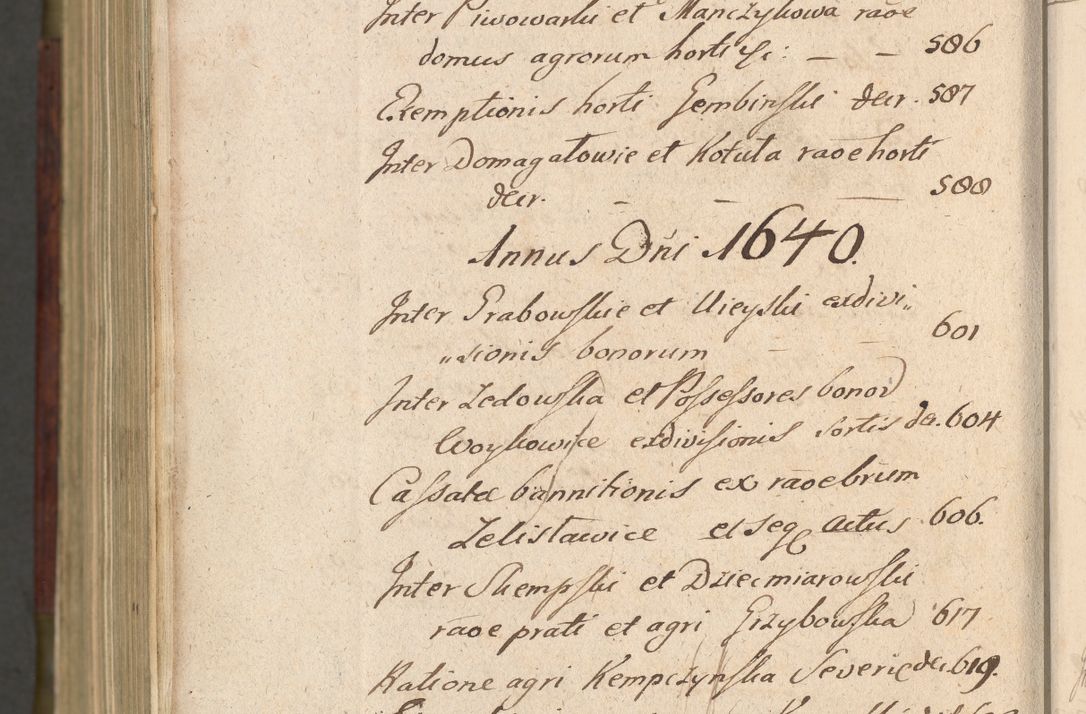 Inter Piwowarski et Manczykowa raõe
domus agrorum horti &c: — — 586
Exemptionis horti Gembinski decr. 587
Inter Domagatowie et Kotuła raõe horti
decr. — — — 588
Annus Dñi 1640.
Inter Grabowskie et Uieyski exdivi„
„sionis bonorum — — 601
Inter Zedowska et Possessores bonor
Woykowice exdivisionis sortis de. 604
Cassatae bannitionis ex raõe brum
Zelisławice et seq Actus 606.
Inter Skempski et Dziecmiarowski
raõe prati et agri Grzybowska 617
Ratione agri Kempczynska Severię dec. 619.